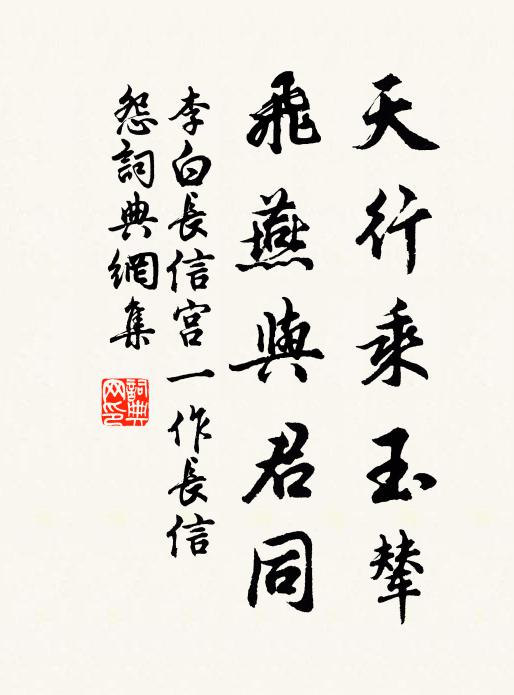 天行乘玉輦
飛燕與君同
李白長信宮一作長信
怨詞典網集
詞典网印